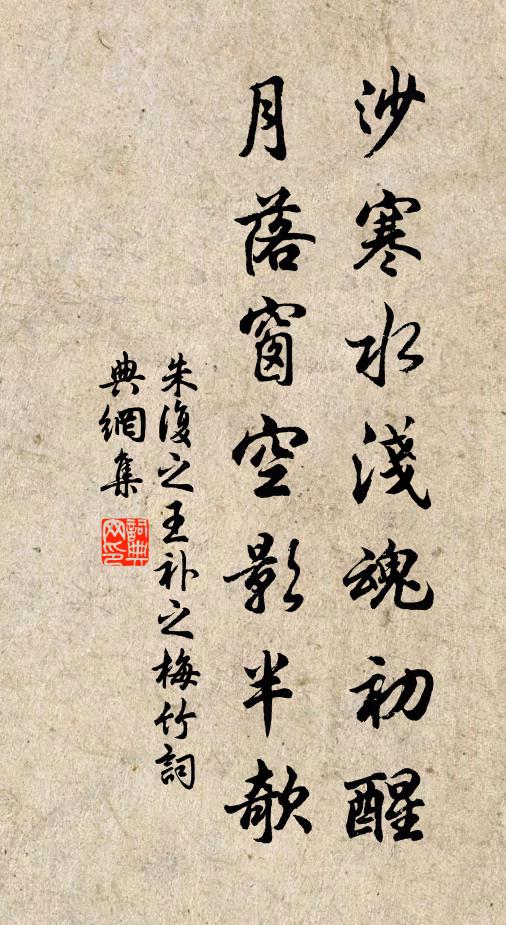 沙寒水淺魂初醒
月落窗空影半欹
朱復之王补之梅竹詞
典網集
詞典网印